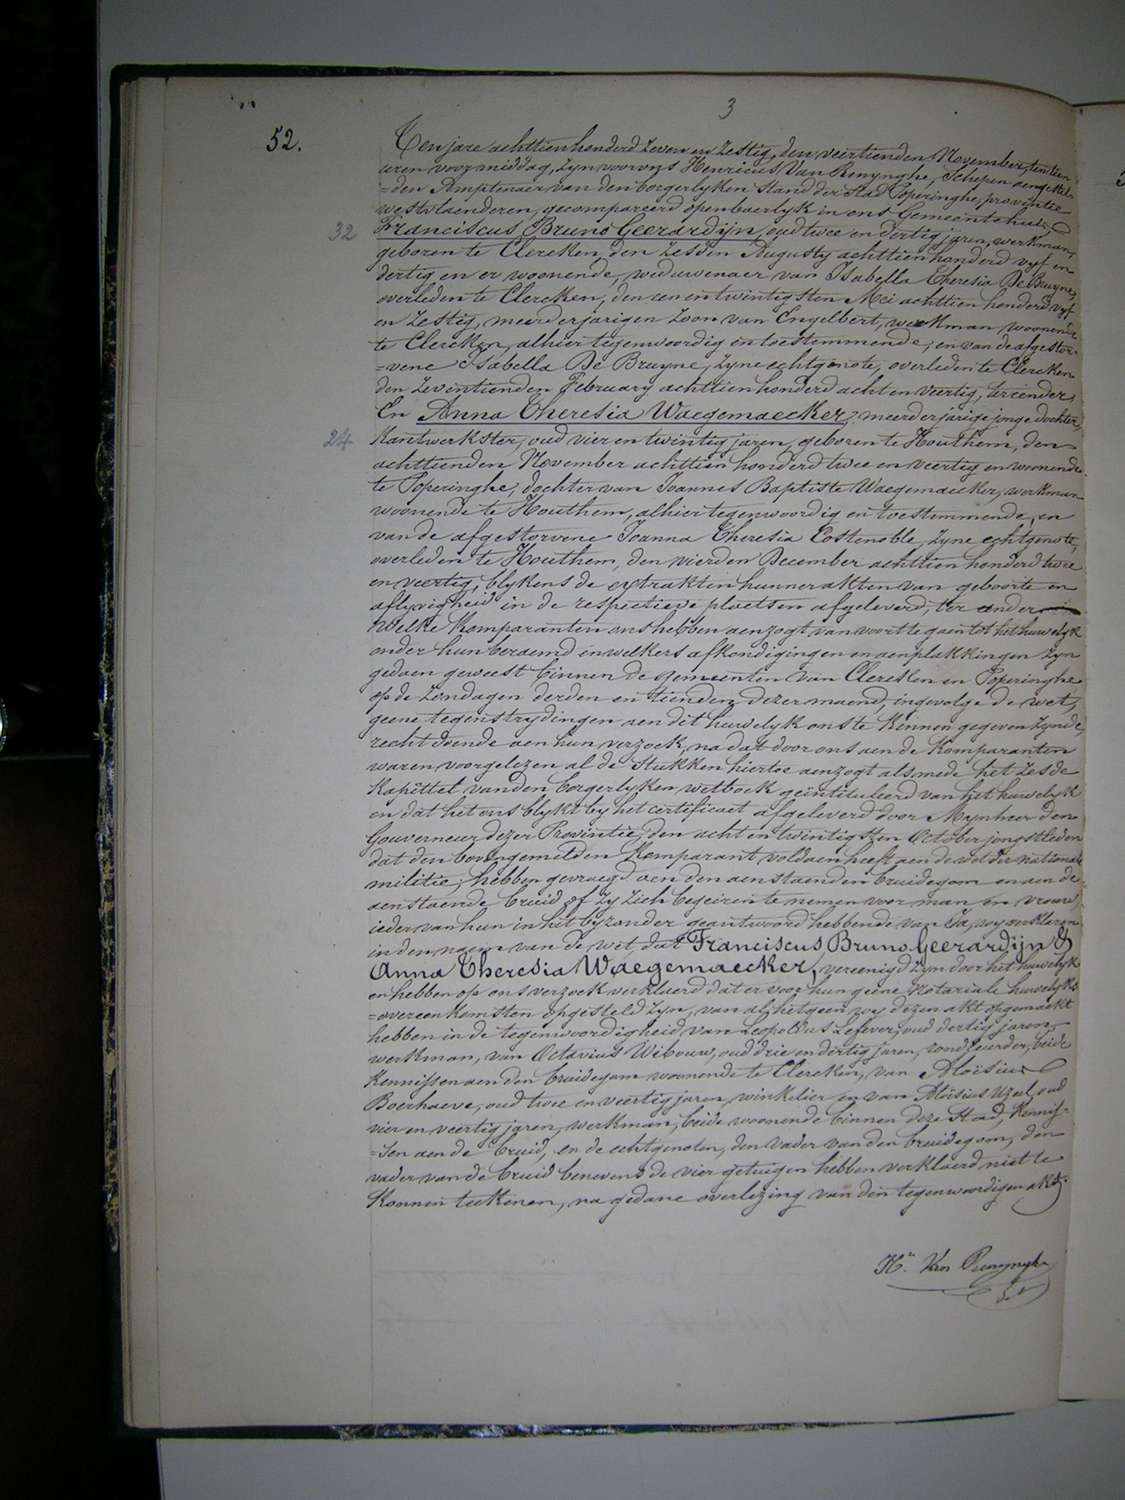 3
52.
Ten jare achttienhonderd zeven en zestig, den veertienden November, ten tien
uren voormiddag, zyn voor wys Henricus Van Renynghe, Schepen aengestel-
=den Amptenaer van den borgerlyken stand der stad Poperinghe, provintie
westvlaenderen, gecompareerd openbaerlyk in ons Gemeentehuis,
32 Franciscus Bruno Geerardijn, oud twee en dertig jaren, werkman,
geboren te Clercken, den zesden Augusty achttien honderd vyf en
dertig en er woonende, weduwenaer van Isabella Theresia De Bruyne,
overleden te Clercken, den een en twintigsten Mei achttien honderd vyf
en zestig, meerderjarigen zoon van Engelbert, werkman woonende
te Clercken, alhier tegenwoordig en toestemmende, en van de afgestor-
=vene Isabella De Bruyne, zyne echtgenote, overleden te Clercken
den zeventienden February achttien honderd acht en veertig, ter eender,
En Anna Theresia Waegemaecker, meerderjarige jonge dochter,
24 Kantwerkster, oud vier en twintig jaren, geboren te Houthem, den
achttienden November achttien honderd twee en veertig en woonende
te Poperinghe, dochter van Joannes Baptiste Waegemaecker, werkman
woonende te Houthem, alhier tegenwoordig en toestemmende, en
van de afgestorvene Joanna Theresia Costenoble, zyne echtgenote,
overleden te Houthem, den vierden December achttien honderd twee
en veertig, blykens de extrakten hunner akten van geboorte en
aflyvigheid in de respectieve plaetsen afgeleverd, ter ander
Welke Komparanten ons hebben aenzogt, van voort te gaen tot het huwelyk
onder hun beraemd en welkers afkondigingen en aenplakkingen zyn
gedaen geweest binnen de gemeenten van Clercken en Poperinghe
op de zondagen derden en tienden dezer maend, ingevolge de wet,
geene tegenstrydingen aen dit huwelyk ons te kennen gegeven zynde,
recht doende aen hun verzoek, na dat door ons aen de Komparanten
waren voorgelezen al de stukken hiertoe aenzogt alsmede het zesde
Kapittel van den borgerlyken wetboek geïntituleerd van het huwelyk
en dat het ons blykt by het certificaet afgeleverd door Mynheer den
Gouverneur dezer Provintie, den acht en twintigsten October jongstleden
dat den bovengemelden Komparant voldaen heeft aen de wet der nationale
militie, hebben gevraegd aen den aenstaenden bruidegom en aen de
aenstaende bruid of zy zich begeiren te nemen voor man en vrouw,
ieder van hun in het byzonder geantwoord hebbende van Ja, wy verklaren
in den naem van de wet, dat Franciscus Bruno Geerardijn &
Anna Theresia Waegemaecker, vereenigd zyn door het huwelyk
en hebben op ons verzoek verklaerd dat er voor hun geene Notariale huwelyks
=overeenkomsten opgesteld zyn, van al hetgeen wy dezen akt opgemaekt
hebben in de tegenwoordigheid van Leopoldus Lefever, oud dertig jaren,
werkman, van Octavius Wibouw, oud drie en dertig jaren, rondleurder, beide
Kennissen aen den bruidegom woonende te Clercken, van Aloïsius
Boerhaeve, oud twee en veertig jaren, winkelier en van Aloïsius Uzeel, oud
vier en veertig jaren, werkman, beide woonende binnen deze stad, Kennis-
=sen aen de bruid, en de echtgenoten, den vader van den bruidegom, den
vader van de bruid benevens de vier getuigen hebben verklaerd niet te
Konnen teekenen, na gedane overlezing van den tegenwoordigen akt.
Hri Van Renynghe